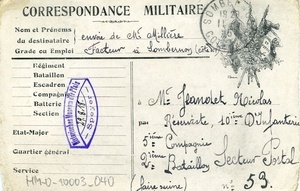 CORRESPONDANCE MILITAIRE
Nom et Prénoms
du destinataire
Grade ou Emploi
envoi de Mr Millière
Facteur à Sombernon
Régiment
Bataillon
Escadron
Compagnie
Batterie
Section
État-Major
Quartier général
à Mr Jeandet Nicolas
Réserviste, 10ème d'Infanterie
5ième Compagnie
2ème Bataillon Secteur Postal
(faire suivre) n° 53.
HM-D-10003-040